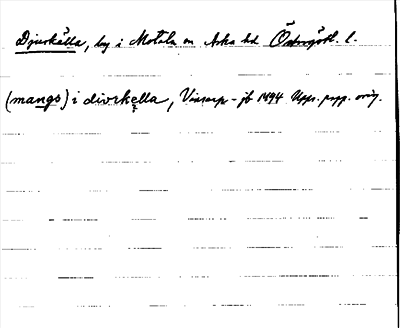 Djurkälla, by i Motala sn Aska hd Östergötl. l.
(mango) i divrkella, Vinsarp-jb 1494 Upps. papp. orig.